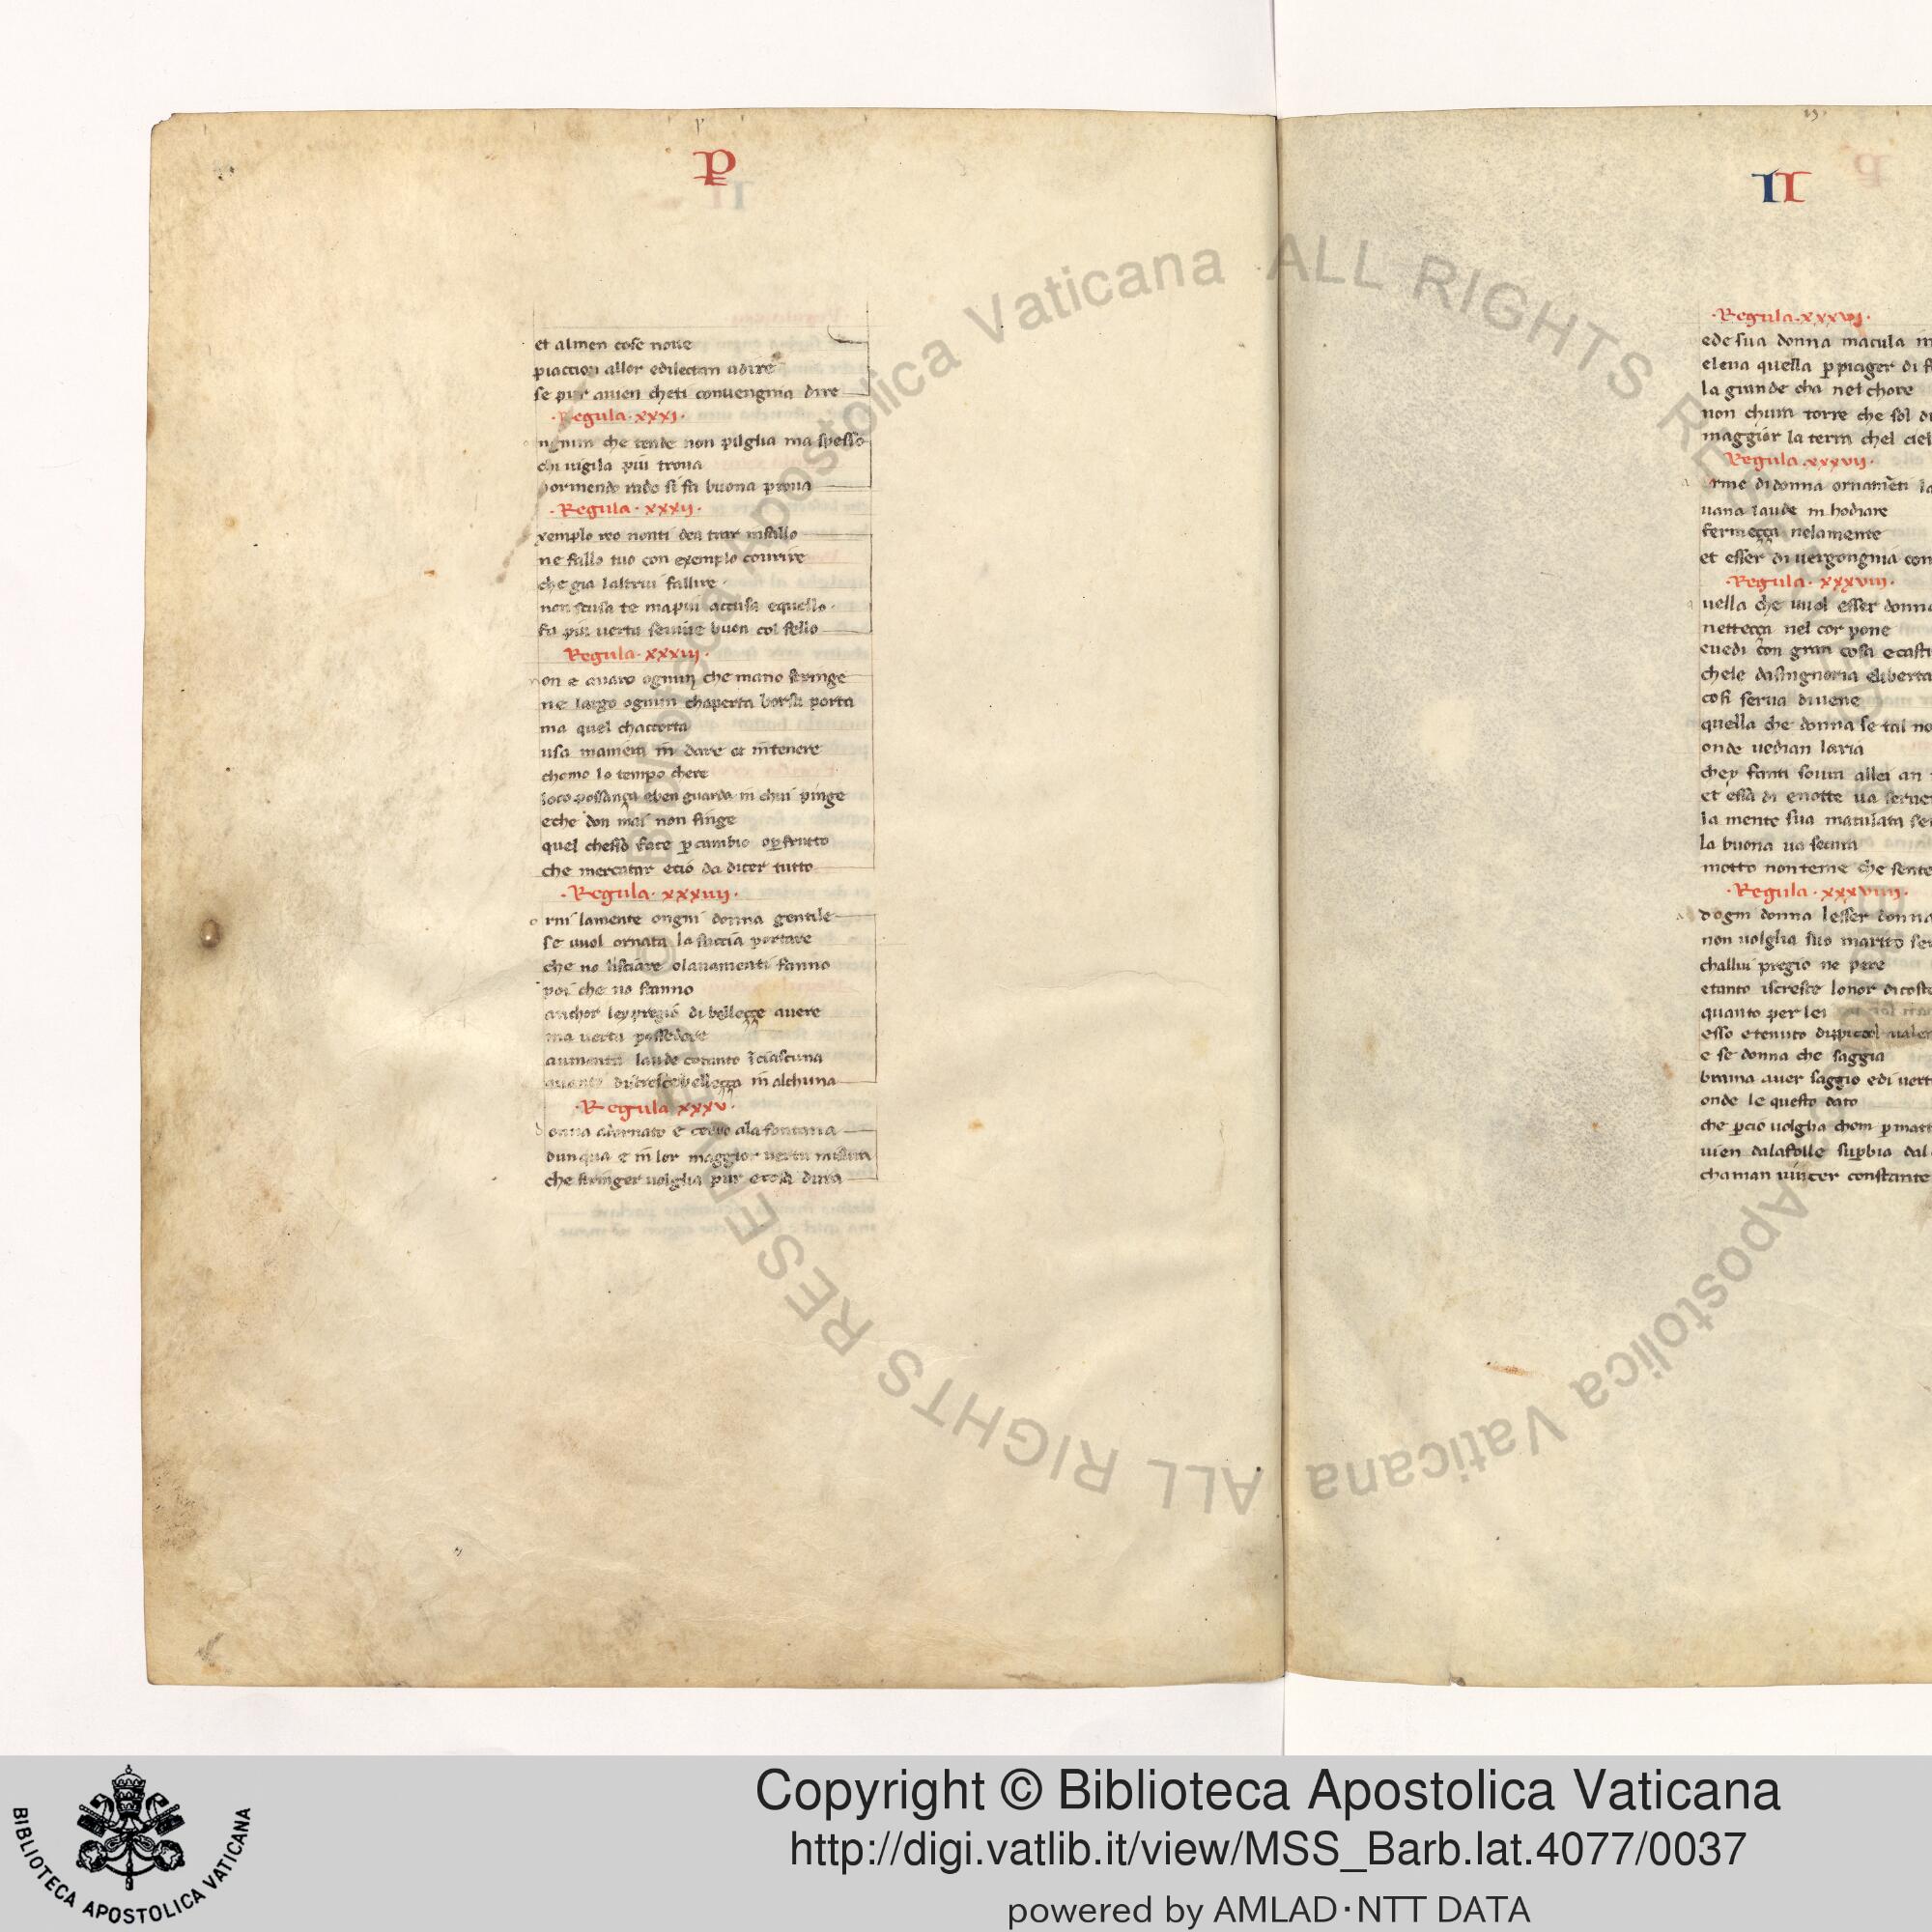 P
et almen cose noue
piaccion allor edilectan udire
se pur auien cheti conuengnia dire
·Regula·xxxi·
ngnun che tende non pilglia ma spesso
chi uigila piu troua
dormendo rado si fa buona proua
·Regula·xxxii·
xemplo reo nonti dea trar infallo
ne fallo tuo con exemplo courire
che gia laltrui fallire
non scusa te mapui accusa equello·
fa piu uertu seruire buon col fello
Regula·xxxiii·
on e auaro ognun che mano stringe
ne largo ognun chaperta borsa porta
ma quel chaccorta
usa mainera in dare et intenere
chomo lo tempo chere
loco possança eben guarda in chui pinge
eche don mai non finge
quel chesso face p cambio op frutto
che mercatar eciò da dicer tutto
·Regula·xxxiiii·
o rni lamente ongni donna gentile
se uuol ornata la faccia portare
che no lisciare olauamenti fanno
poi che no stanno
anchor ley pregio di belleççe auere
ma uertu possedere
aumenta laude cotanto i ciascuna
quanto discresce belleçça in alchuna
·Regula xxxv·
onna adornato e ceruo ala fontana
dunqua e in lor maggior uertu misura
che stringer uolglia pur ecosa dura
II
·Regula·xxxvi·
ede sua donna macula
elena quella p piager di
la grande cha nel chore
non chura torre che sol
maggior la terra chel
Regula·xxxvii·
rme di donna ornamenti
uana laude in hodiare
fermeçça nelamente
et esser di uergongnia
·Regula·xxxviii·
uella che uuol esser donna
netteçça nel cor pone
euedi con gran cosa
chele dasingnoria eliberta
cosi serua diuene
quella che donna se tal
onde uedian laria
chey fanti souin allei an
et essa di enotte ua
la mente sua maculata
la buona ua secura
motto nonteme che sente
·Regula·xxxviiii·
dogni donna lesser donna
non uolglia suo marito
challui pregio ne pere
etanto iscresce lonor
quanto per lei
esso etenuto dippicciol
e se donna che saggia
brama auer saggio edi
onde le questo dato
che pcio uolglia chom
uien dalafolle supbia
chaman uincer constante
BIBLIOTECA APOSTOLICA VATICANA
Copyright © Biblioteca Apostolica Vaticana
http://digi.vatlib.it/view/MSS_Barb.lat.4077/0037
powered by AMLAD·NTT DATA